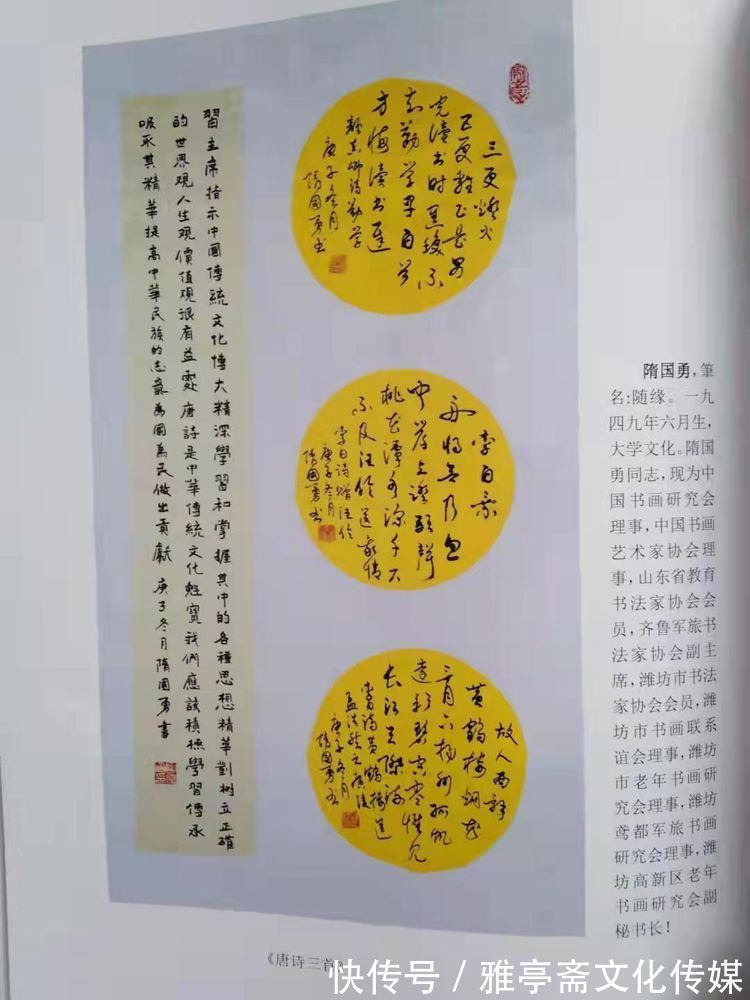 三更燈火
五更雞正是男
児讀书时黑發不
知勤学早白首
方悔读书遲
颜真卿诗劝学
庚子冬月
隋國勇书
李白乘
舟将欲行忽
闻岸上踏歌聲
桃花潭水深千尺
不及汪伦送我情
李白诗赠汪伦
庚子冬月
隋國勇书
故人西辞
黄鹤楼烟花
三月下扬州孤帆
远影碧空尽惟见
长江天际流
李白诗黄鹤楼送
孟浩然之广陵
庚子冬月
隋國勇书
習主席指示中國傳統文化博大精深學習和掌握其中的各種思想精華對樹立正確
的世界觀人生觀價值觀很有益處唐詩是中華傳統文化魁寶我們應該積極學習傳承
吸取其精華提高中華民族的志氣為國為民做出貢獻 庚子冬月隋國勇書
隋国勇,筆
名:随缘。一九
四九年六月生,
大学文化。隋国
勇同志,现为中
国书画研究会
理事,中国书画
艺术家协会理
事,山东省教育
书法家协会会
员,齐鲁军旅书
法家协会副主
席,潍坊市书法
家协会会员,潍
坊市书画联系
谊会理事,潍坊
市老年书画研
究会理事,潍坊
鸢都军旅书画
研究会理事,潍
坊高新区老年
书画研究会副
秘书长!
《唐诗三首》
快传号 / 雅亭斋文化传媒